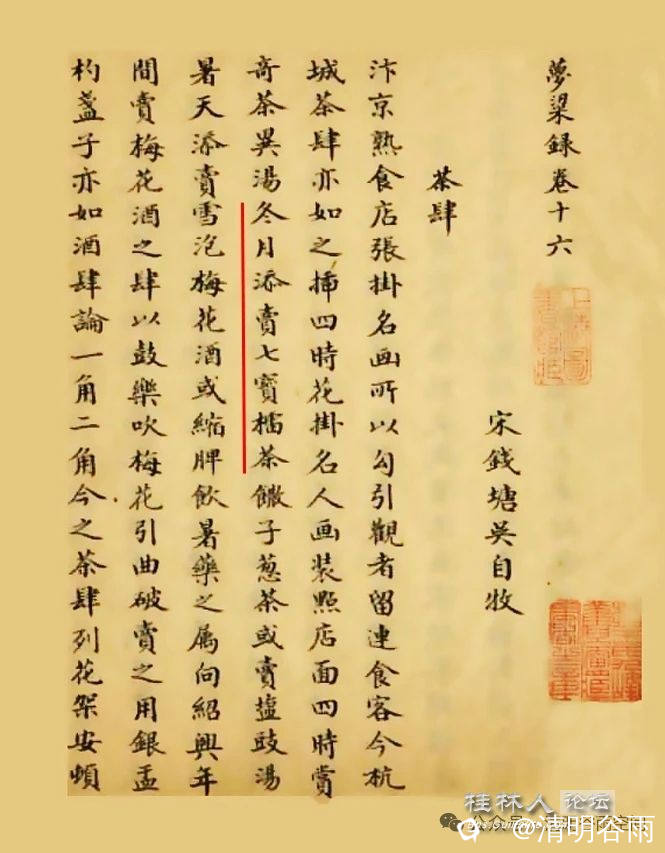 夢粱録卷十六
宋錢塘吳自牧
茶肆
汴京熟食店張掛名画所以勾引觀者留連食客今杭
城茶肆亦如之插四時花掛名人画裝點店面四時賞
奇茶異湯冬月添賣七寳擂茶饊子葱茶或賣塩豉湯
暑天添賣雪泡梅花酒或縮脾飲暑藥之属向紹興年
間賣梅花酒之肆以鼓樂吹梅花引曲破賣之用銀盂
杓盞子亦如酒肆論一角二角今之茶肆列花架安頓
桂林人论坛
@清明谷雨